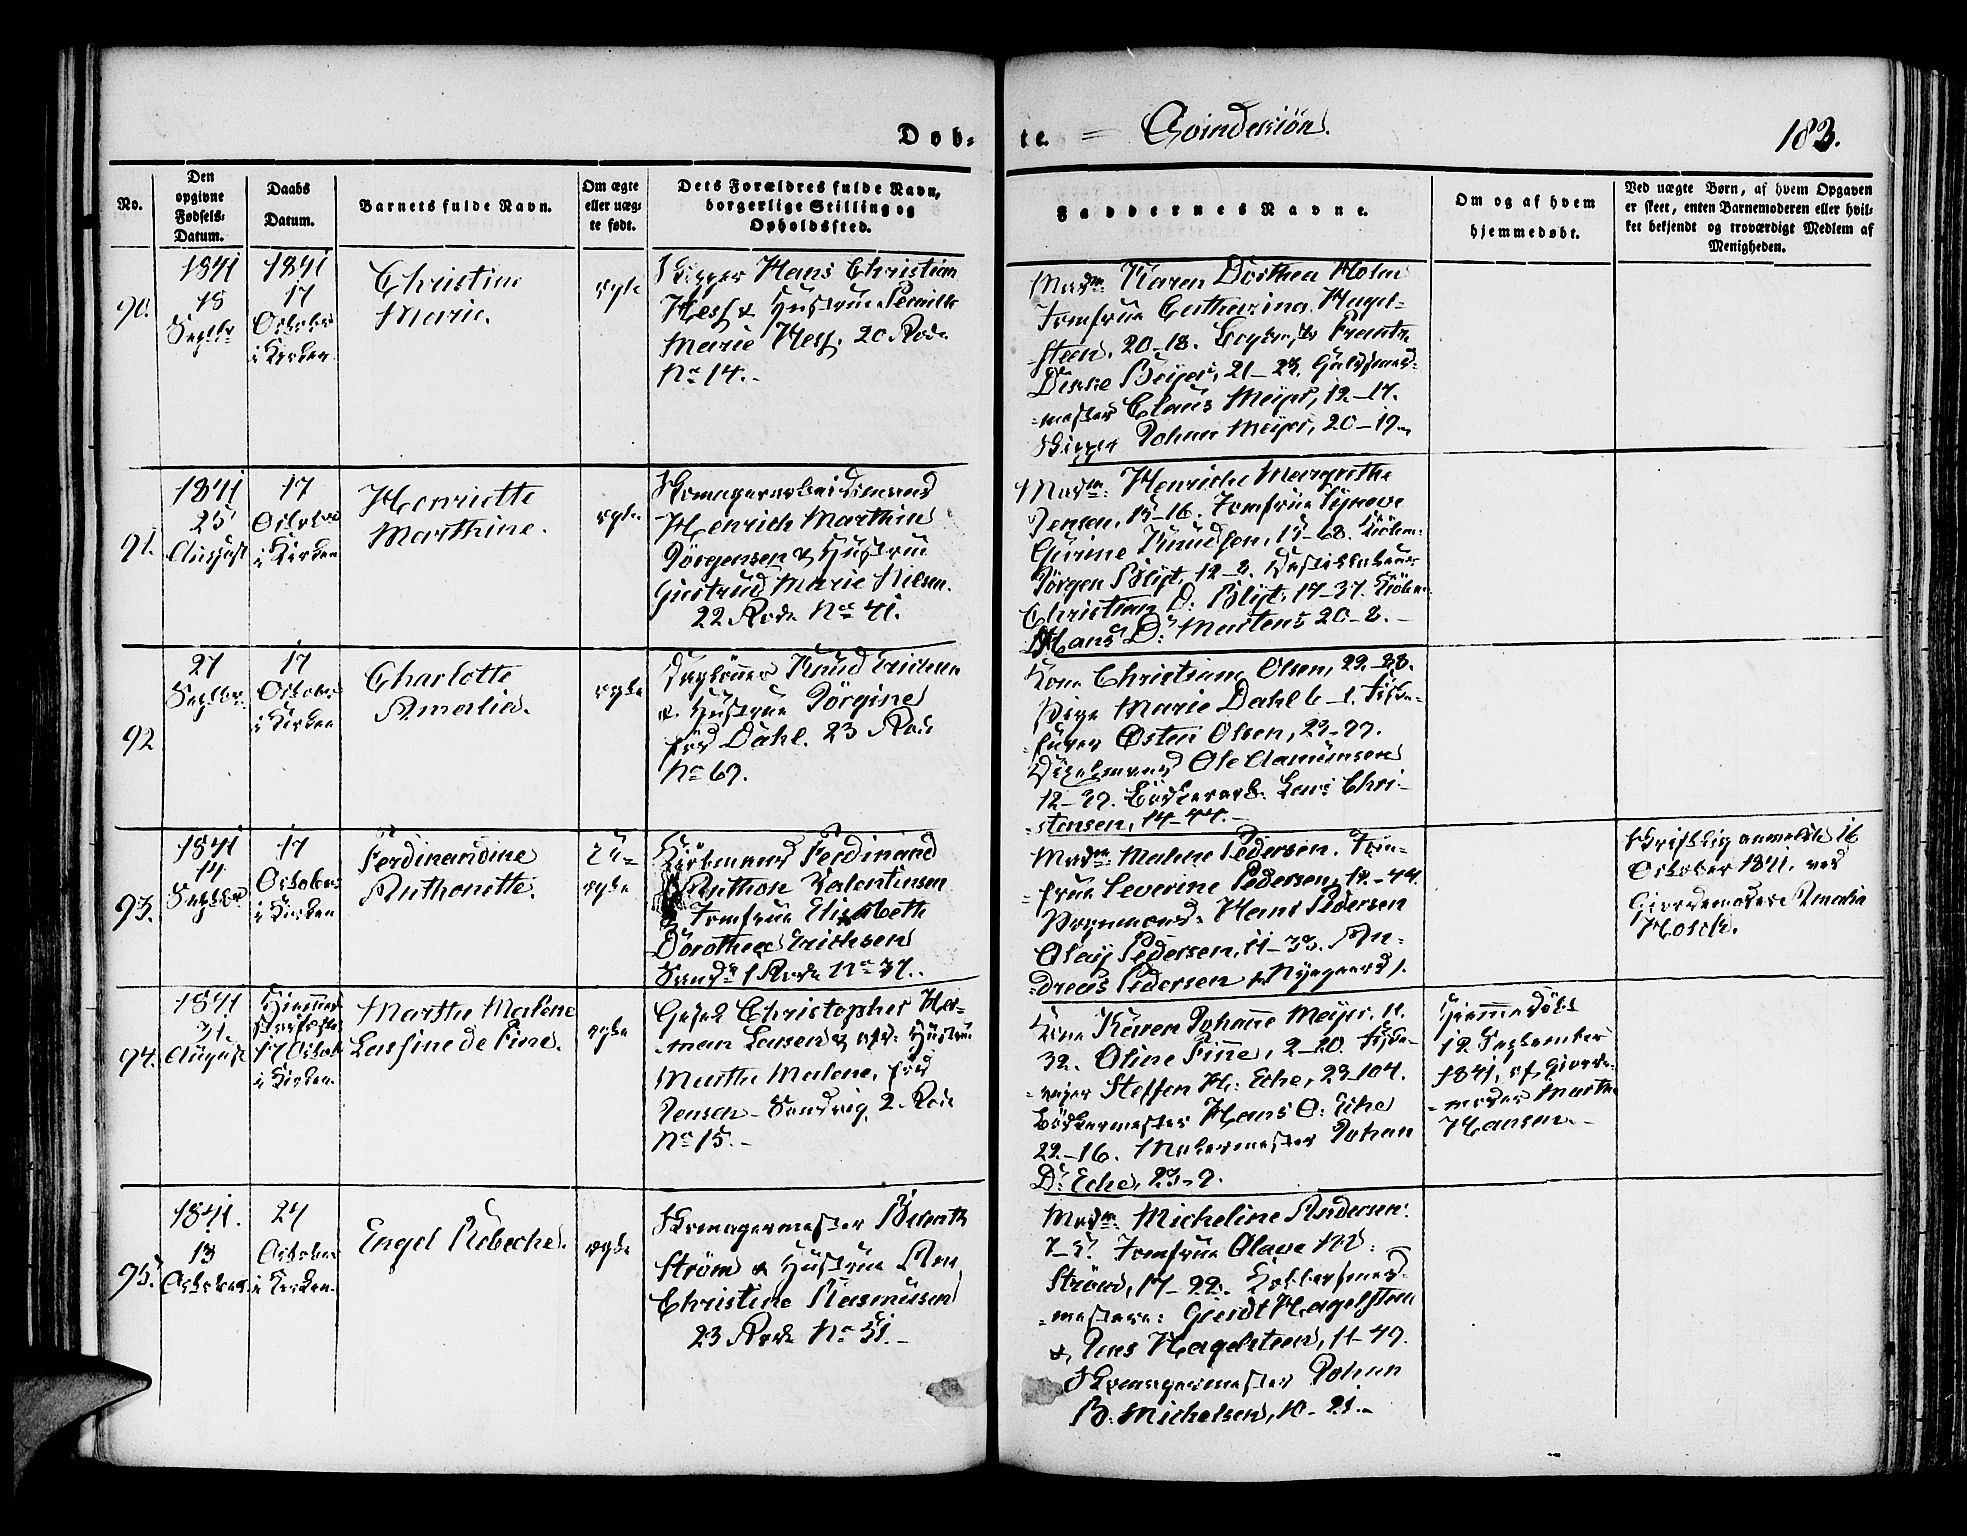 Døb-
te. = Qvindekiön.
183.
No.
Den
opgivne
Fødsels-
Datum.
Daabs
Datum.
Barnets fulde Navn.
Om ægte
eller uæg-
te født.
Dets Forældres fulde Navn,
borgerlige Stilling og
Opholdssted.
Faddernes Navne.
Om og af hvem
hjemmedøbt.
Ved uægte Børn, af hvem Opgaven
er skeet, enten Barnemoderen eller hvil-
ket bekjendt og troværdigt Medlem af
Menigheden.
90.
1841
18
Septbr
1841
17
October
i Kirken.
Christine
Marie.
ægte
Skipper Hans Christian
Hess & Hustrue Pernille
Marie Hess. 20 Rode
No 14.-
Madm: Karen Dorthea Holm
Jomfrue Catharina Hagel-
steen, 20-18.
Beyer, 21-23.
-mester Claus Meyer, 12-17.
Skipper Johan Meyer, 20-19.
91.
1841
25
August
17
October
i Kirken
Henriette
Marthine.
ægte.
Skomagerarbeidsmand
Henrich Marthin
Jörgensen & Hustrue
Giertrud Marie Nilsen.
22 Rode No 41.
Madm: Henriche Margrethe
Jensen, 15-16. Jomfrue Synove
Gurine Knudsen, 15-68. Kiöbm:
Jörgen Bligt, 12-8.
Christian D: Bligt, 17-37. Kiöbm:
Hans D: Martens 20-8.-
92
27
Septbr.
17
October
i Kirken
Charlotte
Amalia.
ægte
Daglönner Knud Erichsen
& Hustrue Jörgine
föd Dahl. 23 Rode
No 69.
Kone Christiane Olsen, 22-28.
Pige Marie Dahl 6-1. Fiske-
Østen Olsen, 23-77.
Ole Aamunsen
12-37. Lars Chri-
-stensen, 14-44.-
93.
1841
14
Septbr
17
October
i Kirken
Ferdinandine
Anthonette.
Uæ-
ægte
Kiöbmand Ferdinand
Anthon Valentinsen
& Jomfrue Elisabeth
Dorothea Erichsen
1 Rode No 37.
Madm: Malene Pedersen. Jom-
frue Severine Pedersen, 12-44.
Hans Pedersen
Olaij Pedersen, 11-33. An-
-dreas Pedersen Nygaard.
Skriftlig anmeldt 16
October 1841. ved
Giordemoder Amalia
Holck.
94.
1841
31
August
17 Octob
i Kirken.
Marthe Malene
Lassine de Fine.
ægte
Christopher Her-
-man Larsen & Hustrue
Marthe Malene, föd
Jensen - Sandvig, 2. Rode
No 15.-
Kone Karen Johanne Meyer. 11.
32. Oline Finne, 2-20. Fiske-
Steffen H: Eche, 23-104.
Bödkermester Hans O: Eche
22-16. Malermester Johan
D: Eche, 23-9.
Hiemmedöbt
12 September
1841, af Giorde-
-moder Marthe
Hansen.-
95.
1841.
13
October
24
October
i Kirken.
Engel Rebecha.
ægte
Skomagermester Berenth
Ström & Hustrue Ane
Christine Rasmusen
23 Rode No 51.-
Madm: Micheline Andersen.
7-5. Jomfrue Olave M:
Ström, 17-22. Kobbersmed-
-mestere: Giendt Hagelsteen
& Jens Hagelsteen, 11-49.
Skomagermester Johan
B. Michelsen, 10-21.-